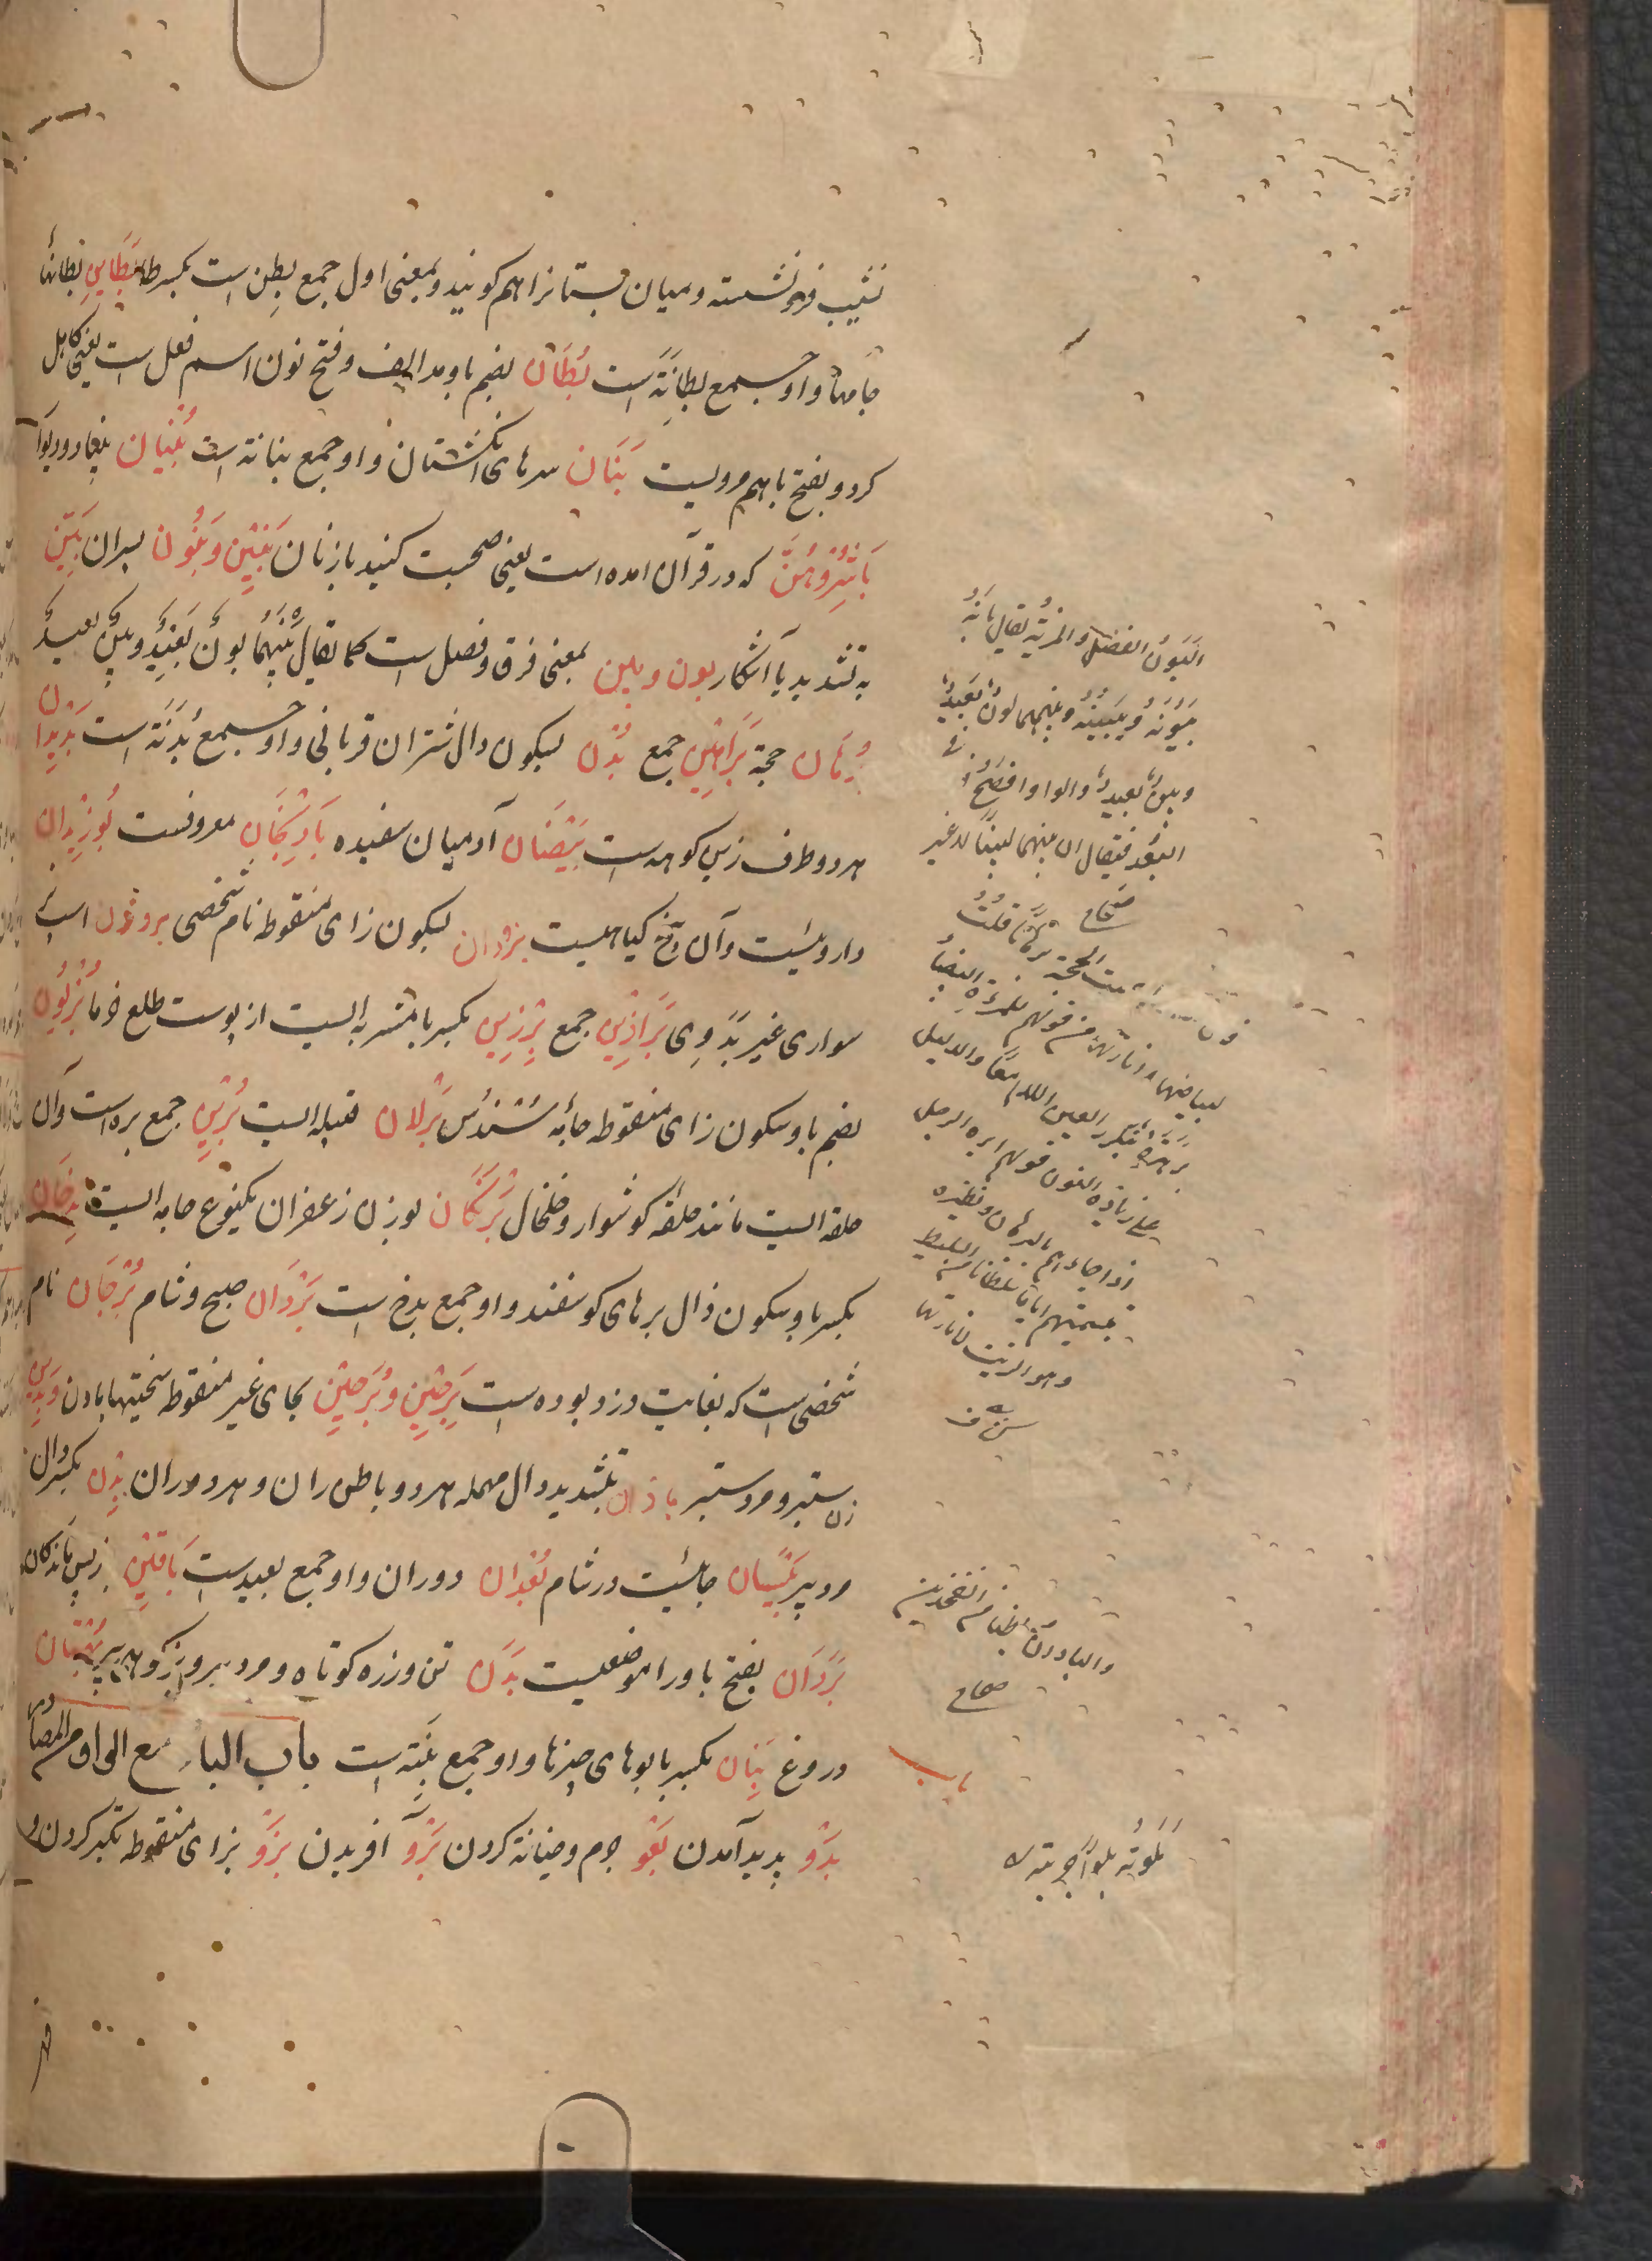 نشیب فرو نشسته و میان پستانرا هم کویند و بمعنی اول جمع بطن است بکسر طا بَطَاین بطانها
جامها و او جمع بطانَة است بُطَان بضم با و مد الف و فتح نون اسم فعل است یعنی کاهل
کرد و بفتح با هم مرویست بَنَان سرهای انکشتان و او جمع بنانة است بُنْیَان بنیاد و دیوار
بَاشِرُوهُنَّ که در قرآن امده است یعنی صحبت کنید با زنان بَنِیْن وَ بَنُون پسران بَیِّن
به تشدید یا آشکار بون و بین بمعنی فرق و فصل است کما یقال بَیْنَهُمَا بَونٌ بَعِیدٌ و بَینٌ بعیدٌ
بُرهَان حجة بَرَاهِین جمع بُدْن بسکون دال شتران قربانی و او جمع بُدَنَة است
هر دو طرف زین کوهه است بَیْضَان آدمیان سفید بَادِنْجَان معروفست بُوزِیْدان
داروئیست و آن بیخ کیاهیست بزوان بسکون زای منقوطه نام شخصی برذون اسب
سواری غیر بَدَوِی بَرَاذِین جمع بِرْزِین بکسر با مشربه ایست از پوست طلع خرما بُزْیُون
بضم با و سکون زای منقوطه جامهٔ سُنْدُس بَزْلان قبیله ایست بُرِین جمع بره است و آن
حلقه ایست مانند حلقهٔ کوشوار و خلخال بَرَّکَان بوزن زعفران یکنوع جامه ایست بِذخَان
بکسر با و سکون ذال برهای کوسفند و او جمع بذخ است بَرْدَان صبح و شام بُرْجَان نام
شخصی است که بغایت دزد بوده است بِرَحِیْن وَ بُرَحِیْن بحای غیر منقوطه سختیها بادن وَ بَدِین
زن ستبر و مرد ستبر بادّان بتشدید دال مهمله هر دو باطن ران و هر دو ران بَدِن بکسر دال
مرد پیر بَیْسَان جائیست در شام بُعْدان دوران و او جمع بعید است بَاقِیْن پس ماندکان
بَرَدَان بفتح با و را موضعیست بَدَن تن و زره کوتاه و مرد پیر و بزکوهی پیر بُهْتَان
دروغ بِنَان بکسر با بوهای چیزها و او جمع بَنَّة است باب الباء مع الواو من المصادر
بَدْو پدید آمدن بَعْو جرم و جنایة کردن بَرْو آفریدن بَزْو بزای منقوطه تکبر کردن و
البَونُ الفضل والمزیّة یقال بَانَهُ
یَبُونُهُ ویَبِینُهُ وبینهما بونٌ بَعِیدٌ
وبینٌ بعیدٌ والواو افصَحُ
البُعْد فیقال ان بینهما لبیناً لا غیر
صحاح
لبیاضها وانارتها من قولهم للمرأة البیضاء
برهرهة بتکریر العین واللام معاً والدلیل
علی زیادة النون قولهم ابره الرجل
اذا جاءهم بالبرهان ونظیره
تسمیتهم ایاها سلطانا من السلیط
وهو الزیت لانارتها
کشاف
والبادّان باطنا الفخذین
صحاح
باب
بَلَوتُهُ بلواً جرّبته